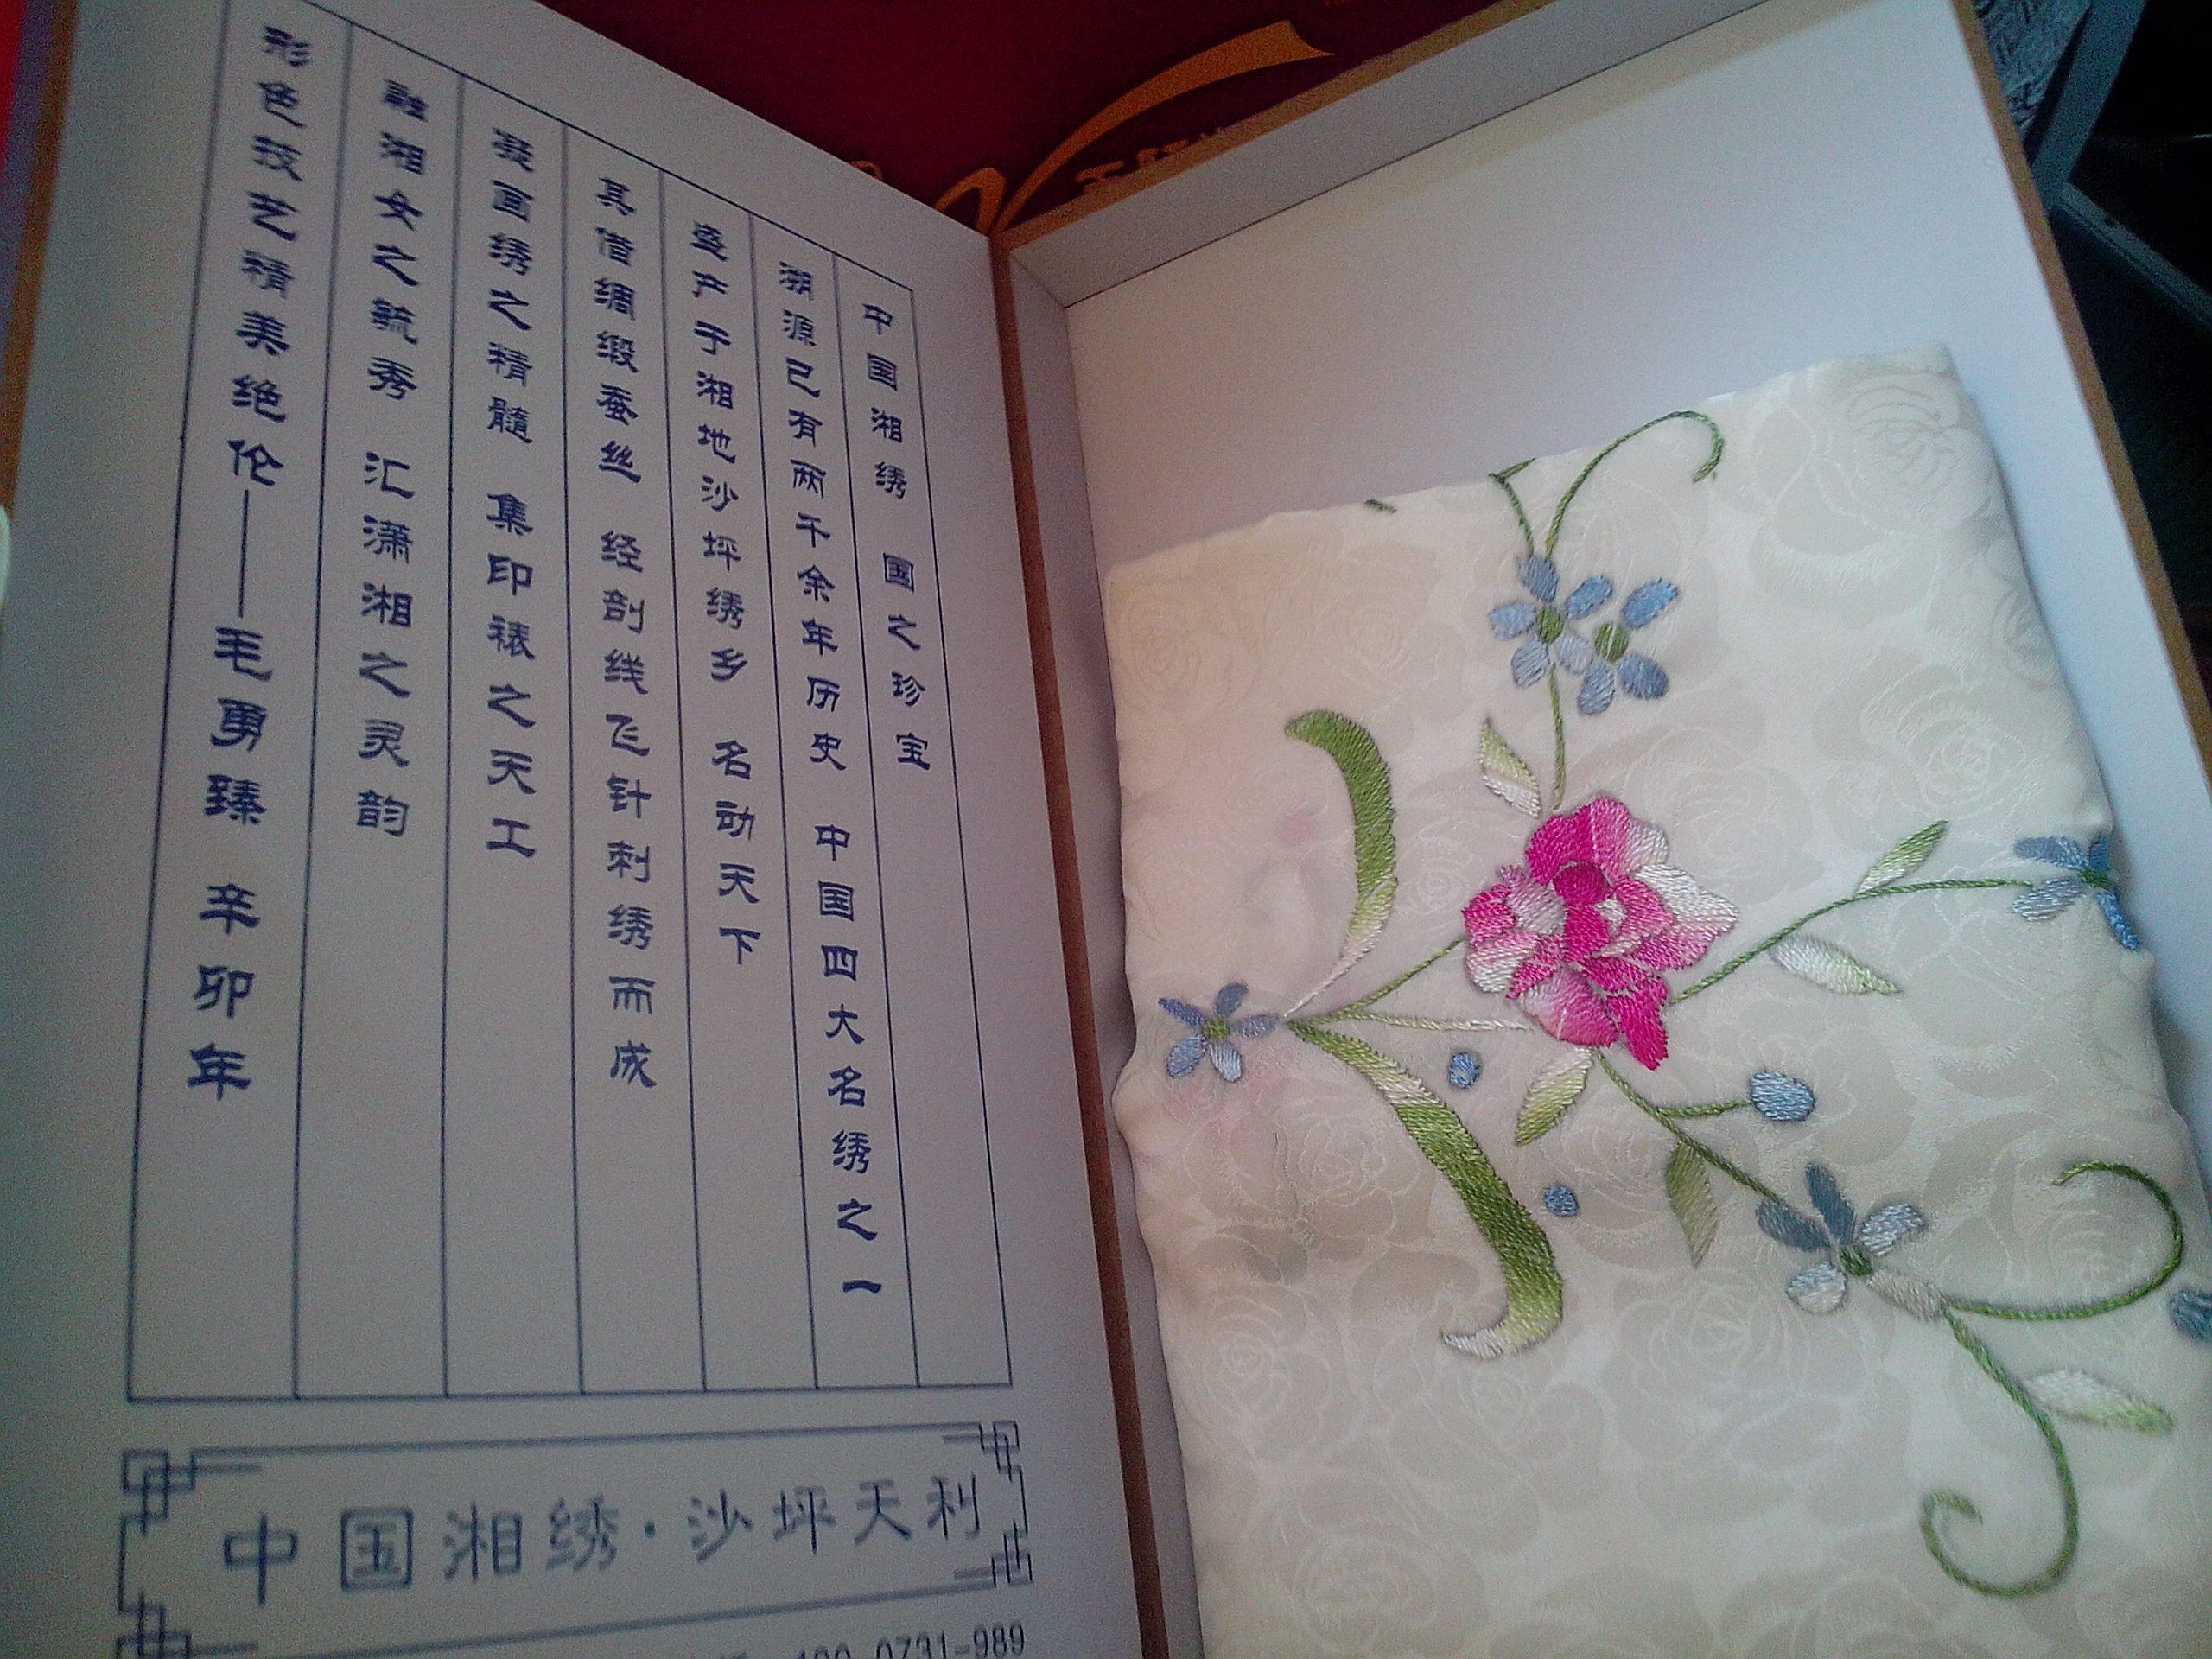 中国湘绣 国之珍宝
溯源已有两千余年历史 中国四大名绣之一
盛产于湘地沙坪绣乡 名动天下
其借绸缎蚕丝 经剖线飞针刺绣而成
凝画绣之精髓 集印裱之天工
融湘女之毓秀 汇潇湘之灵韵
形色技艺精美绝伦——毛勇臻 辛卯年
中国湘绣·沙坪天利
400-0731-989